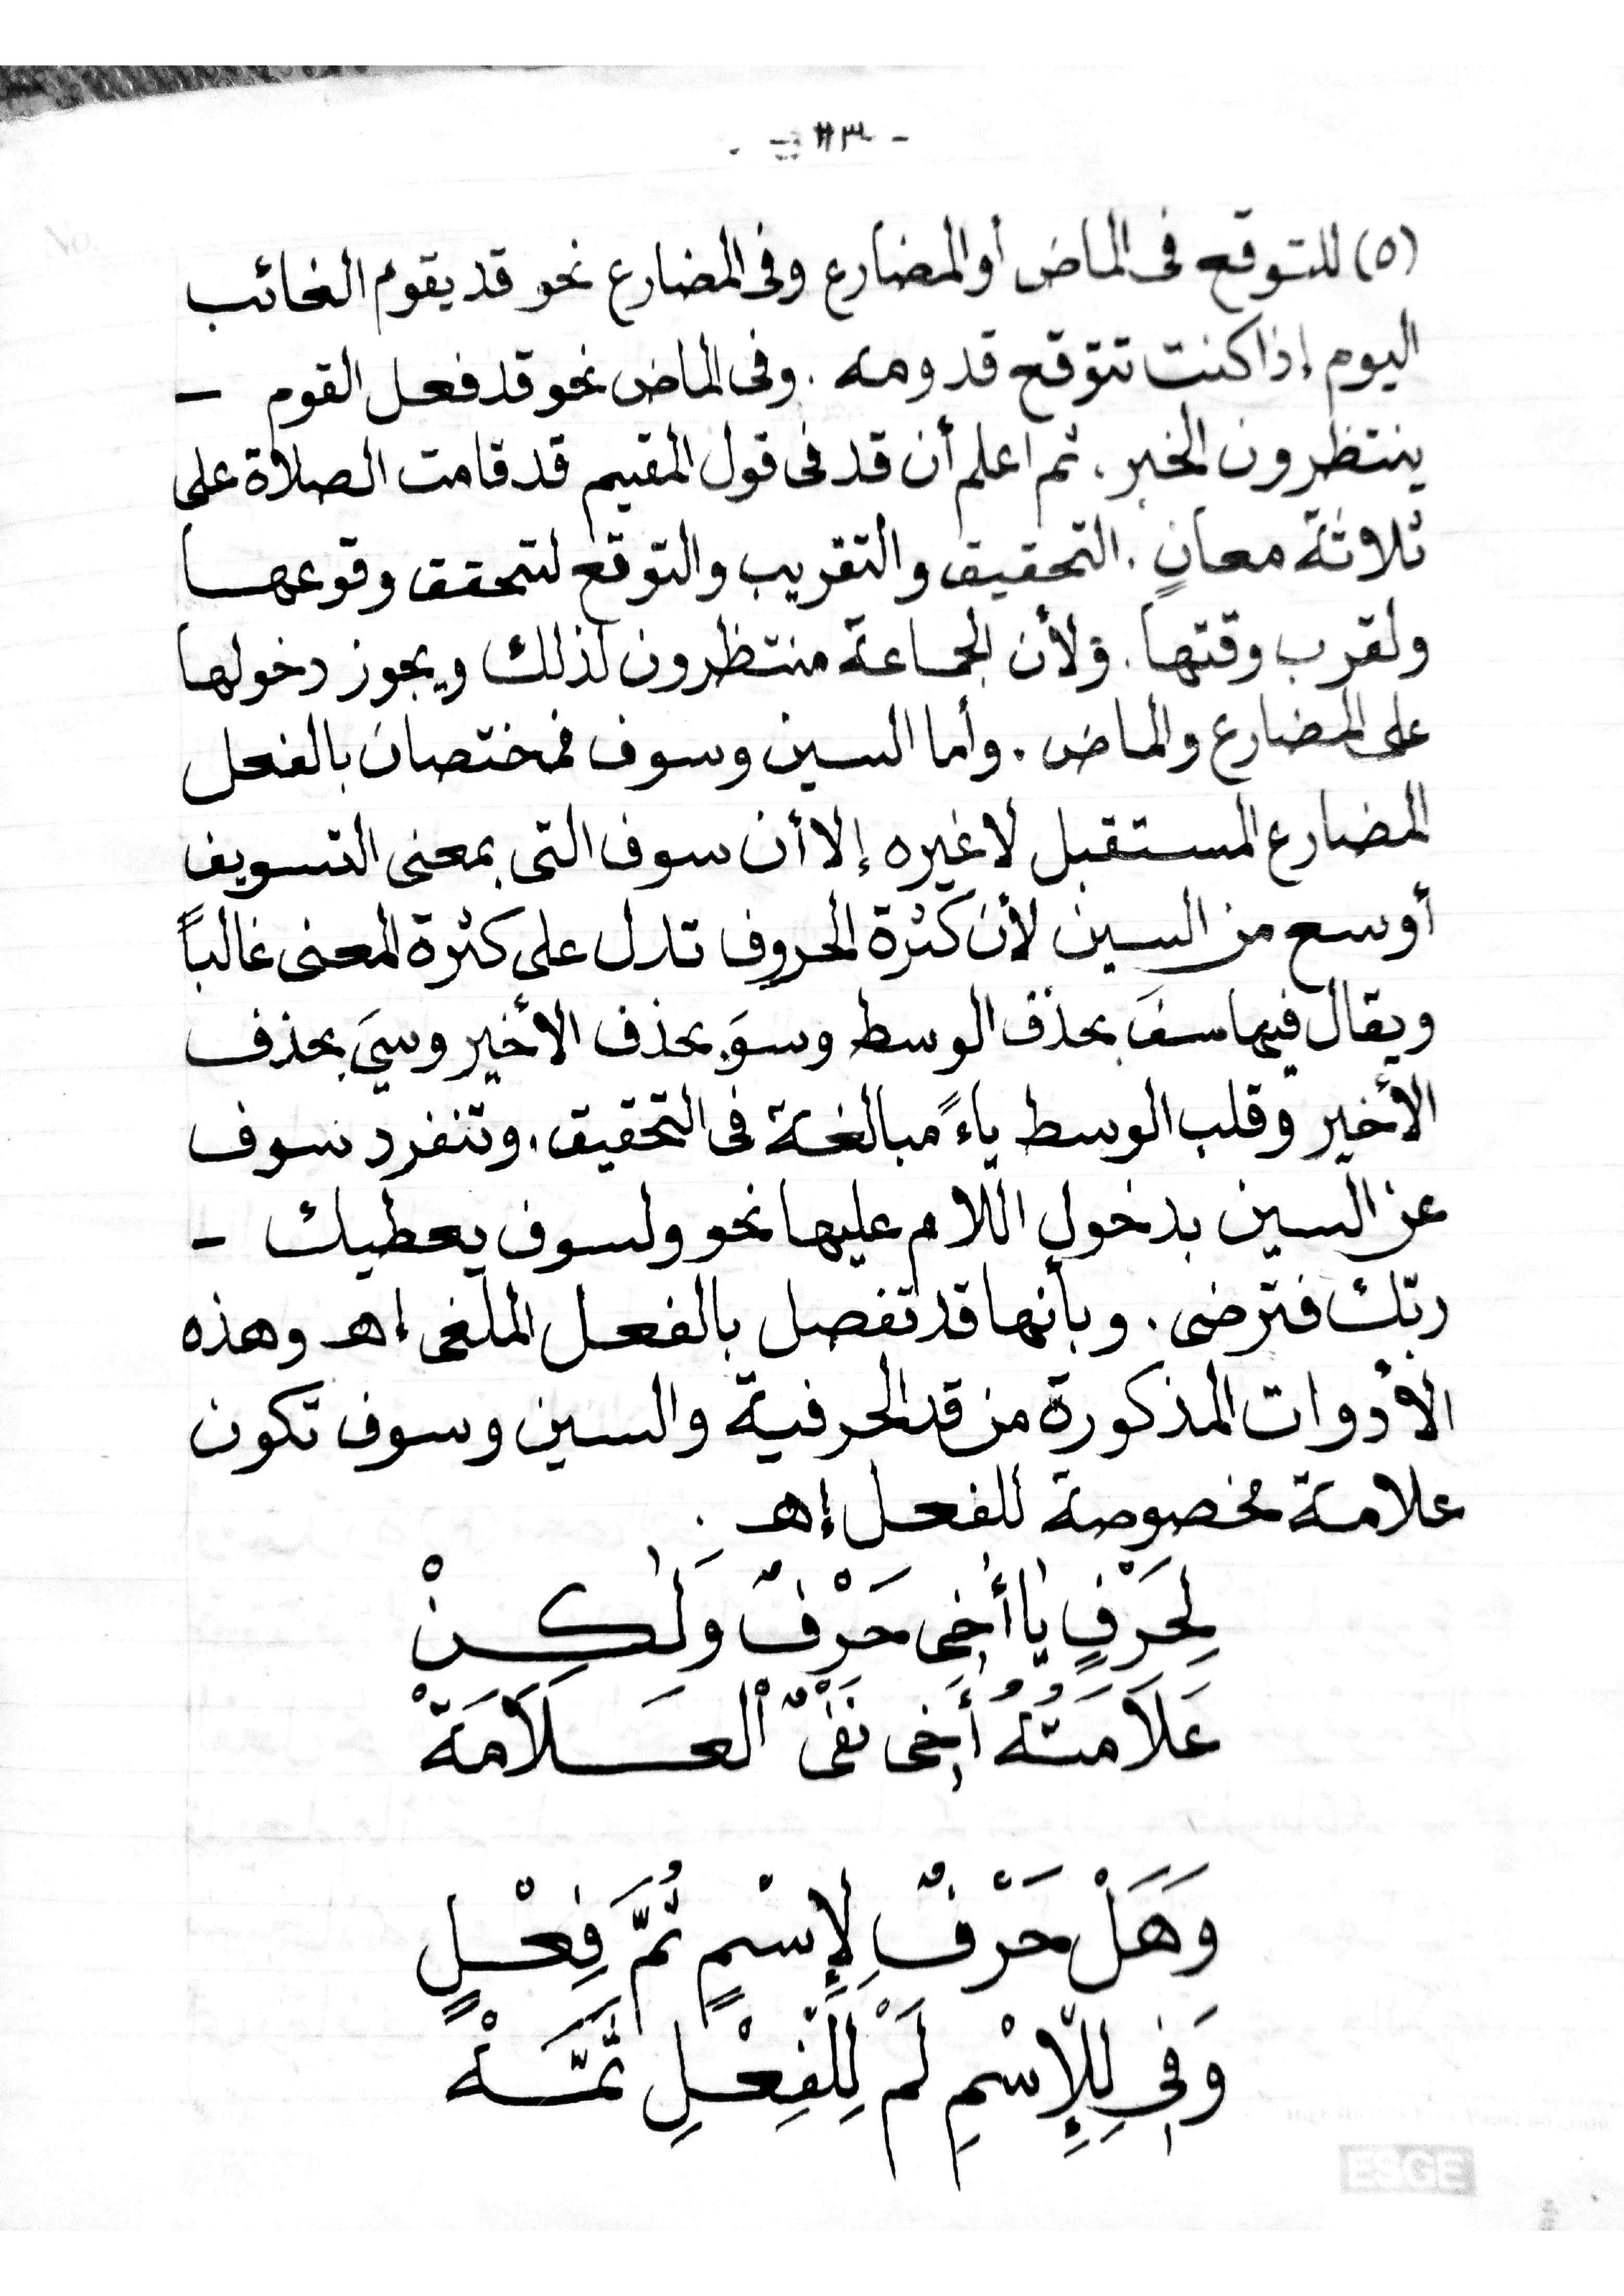 (٥) للتوقع فى الماض أوالمضارع وفى المضارع نحو قد يقوم الغائب
اليوم إذا كنت تتوقع قدومه . وفى الماض نحو قد فعل القوم –
ينتظرون الخبر . ثم اعلم أن قد فى قول المقيم قد قامت الصلاة على
ثلاثة معانٍ . التحقيق والتقريب والتوقع لتحقق وقوعها
ولقرب وقتها . ولأن الجماعة منتظرون لذلك ويجوز دخولها
على المضارع والماض . وأما السين وسوف فمختصان بالفعل
المضارع المستقبل لا غيره إلا أن سوف التى بمعنى التسويف
أوسع من السين لأن كثرة الحروف تدل على كثرة المعنى غالباً
ويقال فيها سفَ بحذف الوسط وسوَ بحذف الأخير وسيَ بحذف
الأخير وقلب الوسط ياءً مبالغة فى التحقيق . وتنفرد سوف
عن السين بدخول اللام عليها نحو ولسوف يعطيك –
ربّك فترضى . وبأنها قد تفصل بالفعل الملغى إهـ وهذه
الأدوات المذكورة من قد الحرفية والسين وسوف تكون
علامة مخصوصة للفعل إهـ .
لِحَرْفٍ يَا أَخِى حَرْفٌ وَلَكِنْ
عَلَامَتُهُ أَخِى نَفْىُ الْعَلَامَةْ
وَهَلْ حَرْفٌ لِإِسْمٍ ثُمَّ فِعْلٍ
وَفِى لِلْإِسْمِ لَمْ لِلْفِعْلِ ثَمَّةْ
ESGE